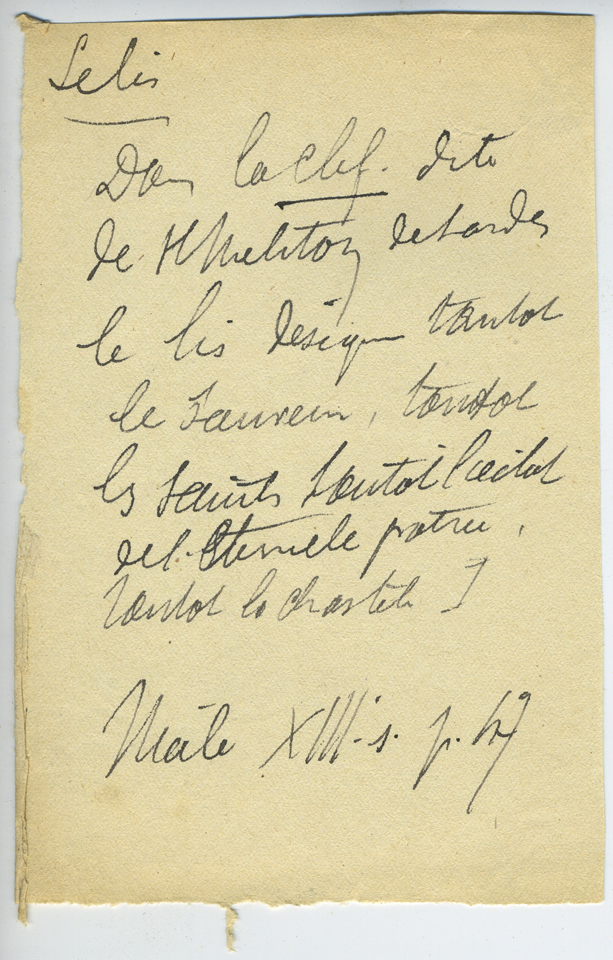 Le lis
Dans la clef. dite
de Meliton de Sardes
le lis désigne tantot
le Sauveur, tantot
les Saints tantot l'eclat
de l'Eternele patrie,
tantot la chasteté ]
Mâle XIIIe s. p.